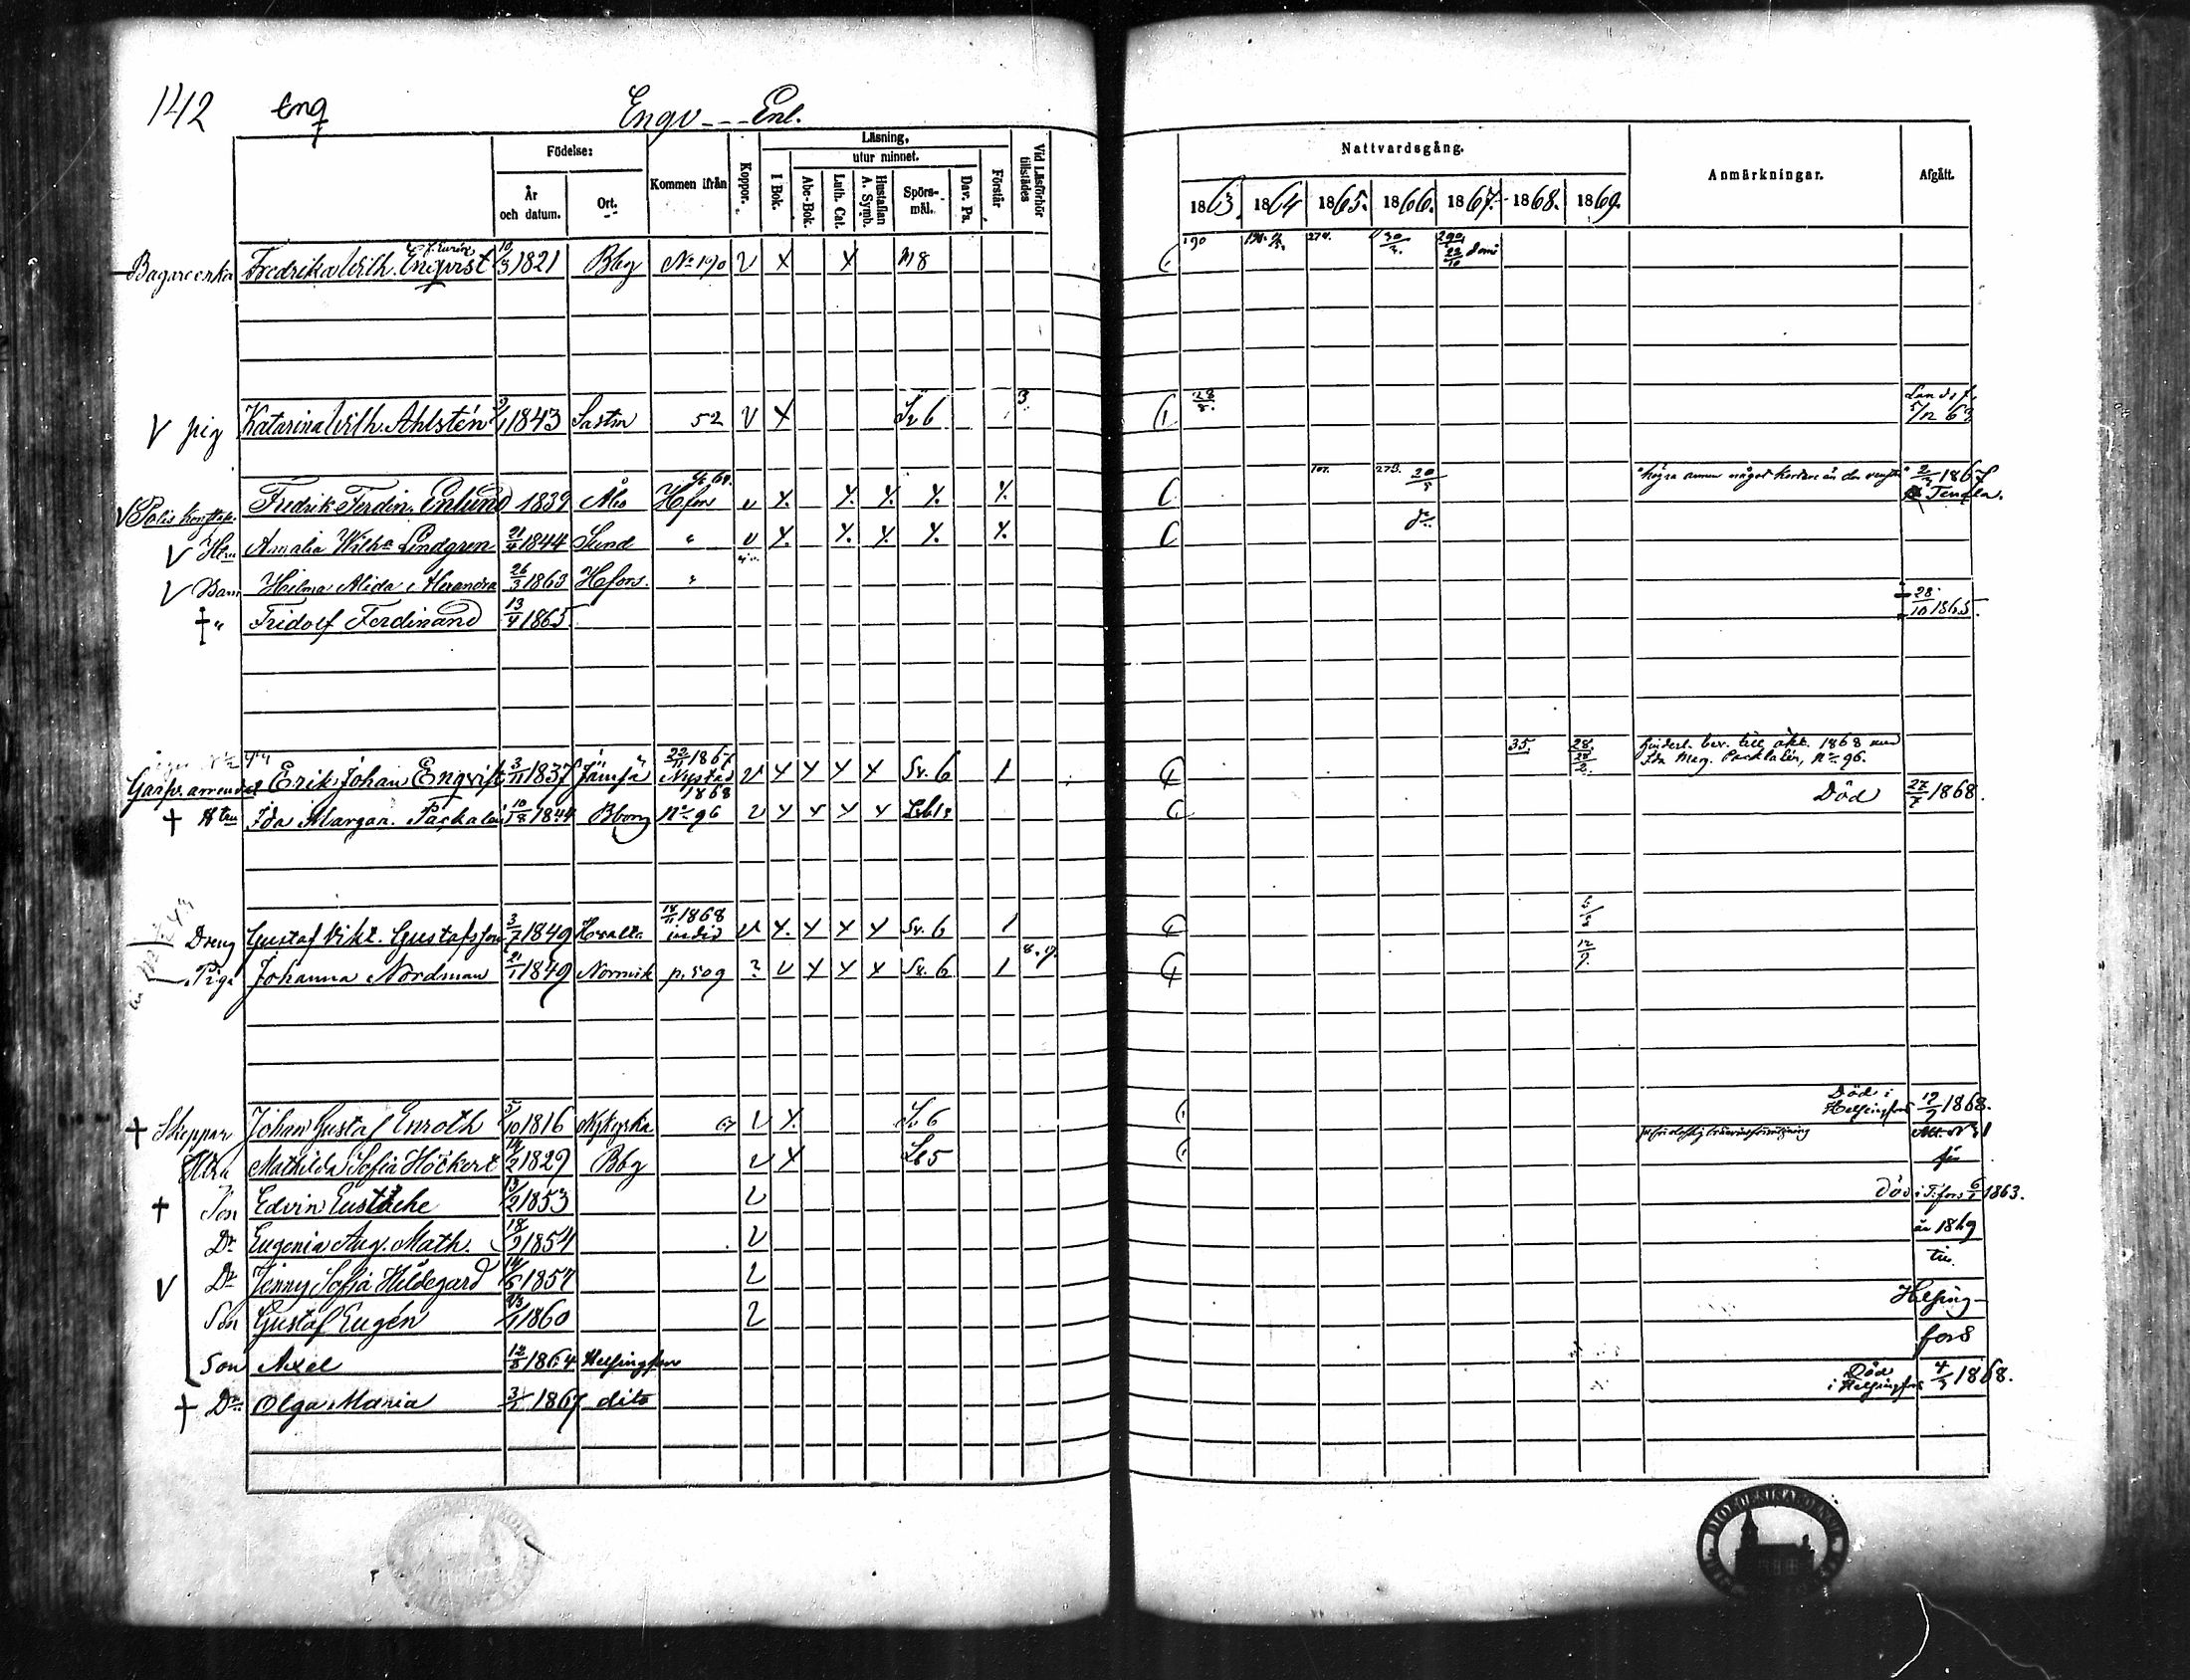 142 Enq Engv---Enl.
Födelse: Läsning, Nattvardsgång.
utur minnet.
År och datum. Ort. Kommen ifrån Koppor. I Bok. Abc-Bok. Luth. Cat. Hustaflan A. Symb. Spörsmål. Dav. Ps. Förstår Vid Läsförhör tillstädes 1863. 1864 1865. 1866. 1867. 1868. 1869. Anmärkningar. Afgått.
Bagareenka Fredrika Wilh. Enqvist 10/3 1821 Bbg No 190 v x x N 8 190 274. 30/3. 290 22/10
V pig Katarina Wilh. Ahlstén 1843 52 v x Sv 6 3 28/8. 5/12 63
V Polis konstap. Fredrik Ferdin. Enlund 1839 Åbo H.fors v x. x. x. x. x. 107. 273. 20/5 "högra armen något kortare än den venstra" 2/3 1867 Tenala.
V Hu Amalia Wilh:a Lindgren 21/4 1844 Sund " v x. x. x. x. x.
V Barn Hilma Alida Alexandra 26/3 1863 H.fors. "
† " Fridolf Ferdinand 13/4 1865 † 28/10 1865.
22/11 1867 35. 28. Hinderl. bev. till äkt. 1868 med
Erik Johan Engvist 3/11 1837 Jämsä Nystad v x x x x Sv. 6 1 28/2. Ida Marg. Packalén, No 96.
1868
† Htru Ida Margar. Packalén 10/8 1844 Bborg No 96 v x x x x Död 27/7 1868.
14/11 1868
Dreng Gustaf Vikt. Gustafsson 3/7 1849 v x. x x x Sv. 6 1
Piga Johanna Nordman 21/1 1849 Norrvik p. 509 2 v x x x Sv. 6 1 8. 17. 12/9.
† Skeppar Johan Gustaf Enroth 5/10 1816 Nykyrka 67 v x. Sv 6 Död i Helsingfors 12/9 1868.
Htru Mathilda Sofia Höckert 14/2 1829 Bbg v x 5
† Son Edvin Eustache 13/2 1853 v Död i H.fors 6/1 1863.
Dr Eugenia Aug. Math. 18/9 1854 v år 1869
V Dr Jenny Sofia Hildegard 14/6 1857 v till
Son Gustaf Eugén 23/1 1860 v Helsing-
Son Axel 12/8 1864 Helsingfors fors
† Dr Olga Maria 3/2 1867 dito Död i Helsingfors 4/3 1868.